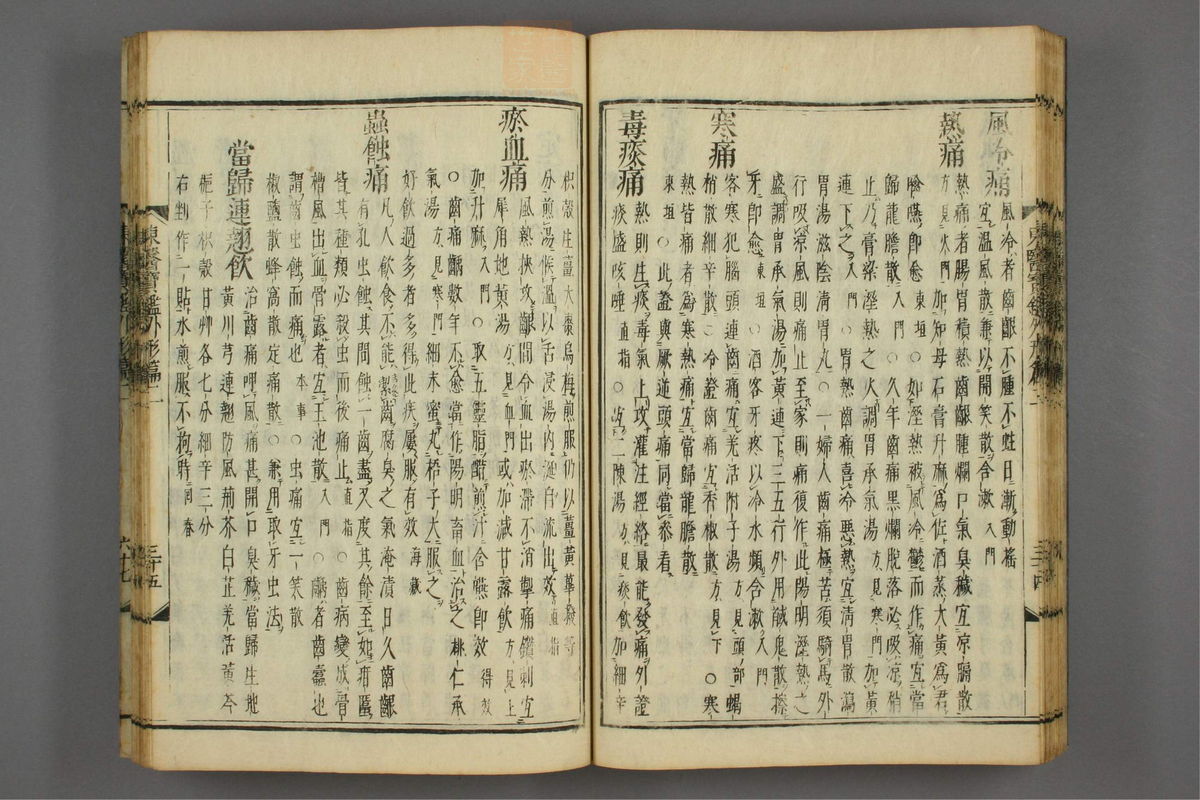 風冷痛
風冷者齒齦不腫不蛀日漸動搖
宜溫風散兼以開笑散含漱入門
熱痛
熱痛者腸胃積熱齒齦腫爛口氣臭穢宜凉膈散
方見火門加知母石膏升麻爲佐酒蒸大黃爲君
噙嚥卽愈東垣○如溼熱被風冷鬱而作痛宜當
歸龍膽散入門○久年齒痛黑爛脫落必吸凉稍
止乃膏粱溼熱之火調胃承氣湯方見寒門加黃
連下之入門○胃熱齒痛喜冷惡熱宜淸胃散瀉
胃湯滋陰淸胃丸○一婦人齒痛極苦須騎馬外
行吸凉風則痛止至家則痛復作此陽明溼熱之
盛調胃承氣湯加黃連下三五行外用鹹鬼散擦
牙卽愈東垣○酒客牙疼以冷水頻含漱入門
寒痛
客寒犯腦頭連齒痛宜羌活附子湯方見頭部蝎
梢散細辛散○冷證齒痛宜香椒散方見下○寒
熱皆痛者爲寒熱痛宜當歸龍膽散
東垣○此證與厥逆頭痛同當叅看
毒痰痛
熱則生痰毒氣上攻灌注經絡最能發痛外證
痰盛咳唾直指○宜二陳湯方見痰飮加細辛
枳殼生薑大棗烏梅煎服仍以薑黃蓽撥等
分煎湯候溫以舌浸湯內涎自流出效直指
瘀血痛
風熱挾攻齦間令血出瘀滯不消掣痛鑽刺宜
犀角地黃湯方見血門或加減甘露飮方見上
加升麻入門○取五靈脂醋煎汁含嚥卽效得效
○齒痛齲數年不愈當作陽明畜血治之桃仁承
氣湯方見寒門細末蜜丸梧子大服之
好飮過多者多得此疾屢服有效海藏
蟲蝕痛
凡人飮食不能潔齒腐臭之氣淹漬日久齒齦
有孔虫蝕其間蝕一齒盡又度其餘至如疳䘌
皆其種類必殺虫而後痛止直指○齒病變成骨
槽風出血骨露者宜玉池散入門○齲者齒蠹也
謂齒虫蝕而痛也本事○虫痛宜一笑散
椒鹽散蜂窩散定痛散○兼用取牙虫法
當歸連翹飮
治齒痛呷風痛甚開口臭穢當歸生地
黃川芎連翹防風荊芥白芷羌活黃芩
梔子枳殼甘艸各七分細辛三分
右剉作一貼水煎服不拘時回春